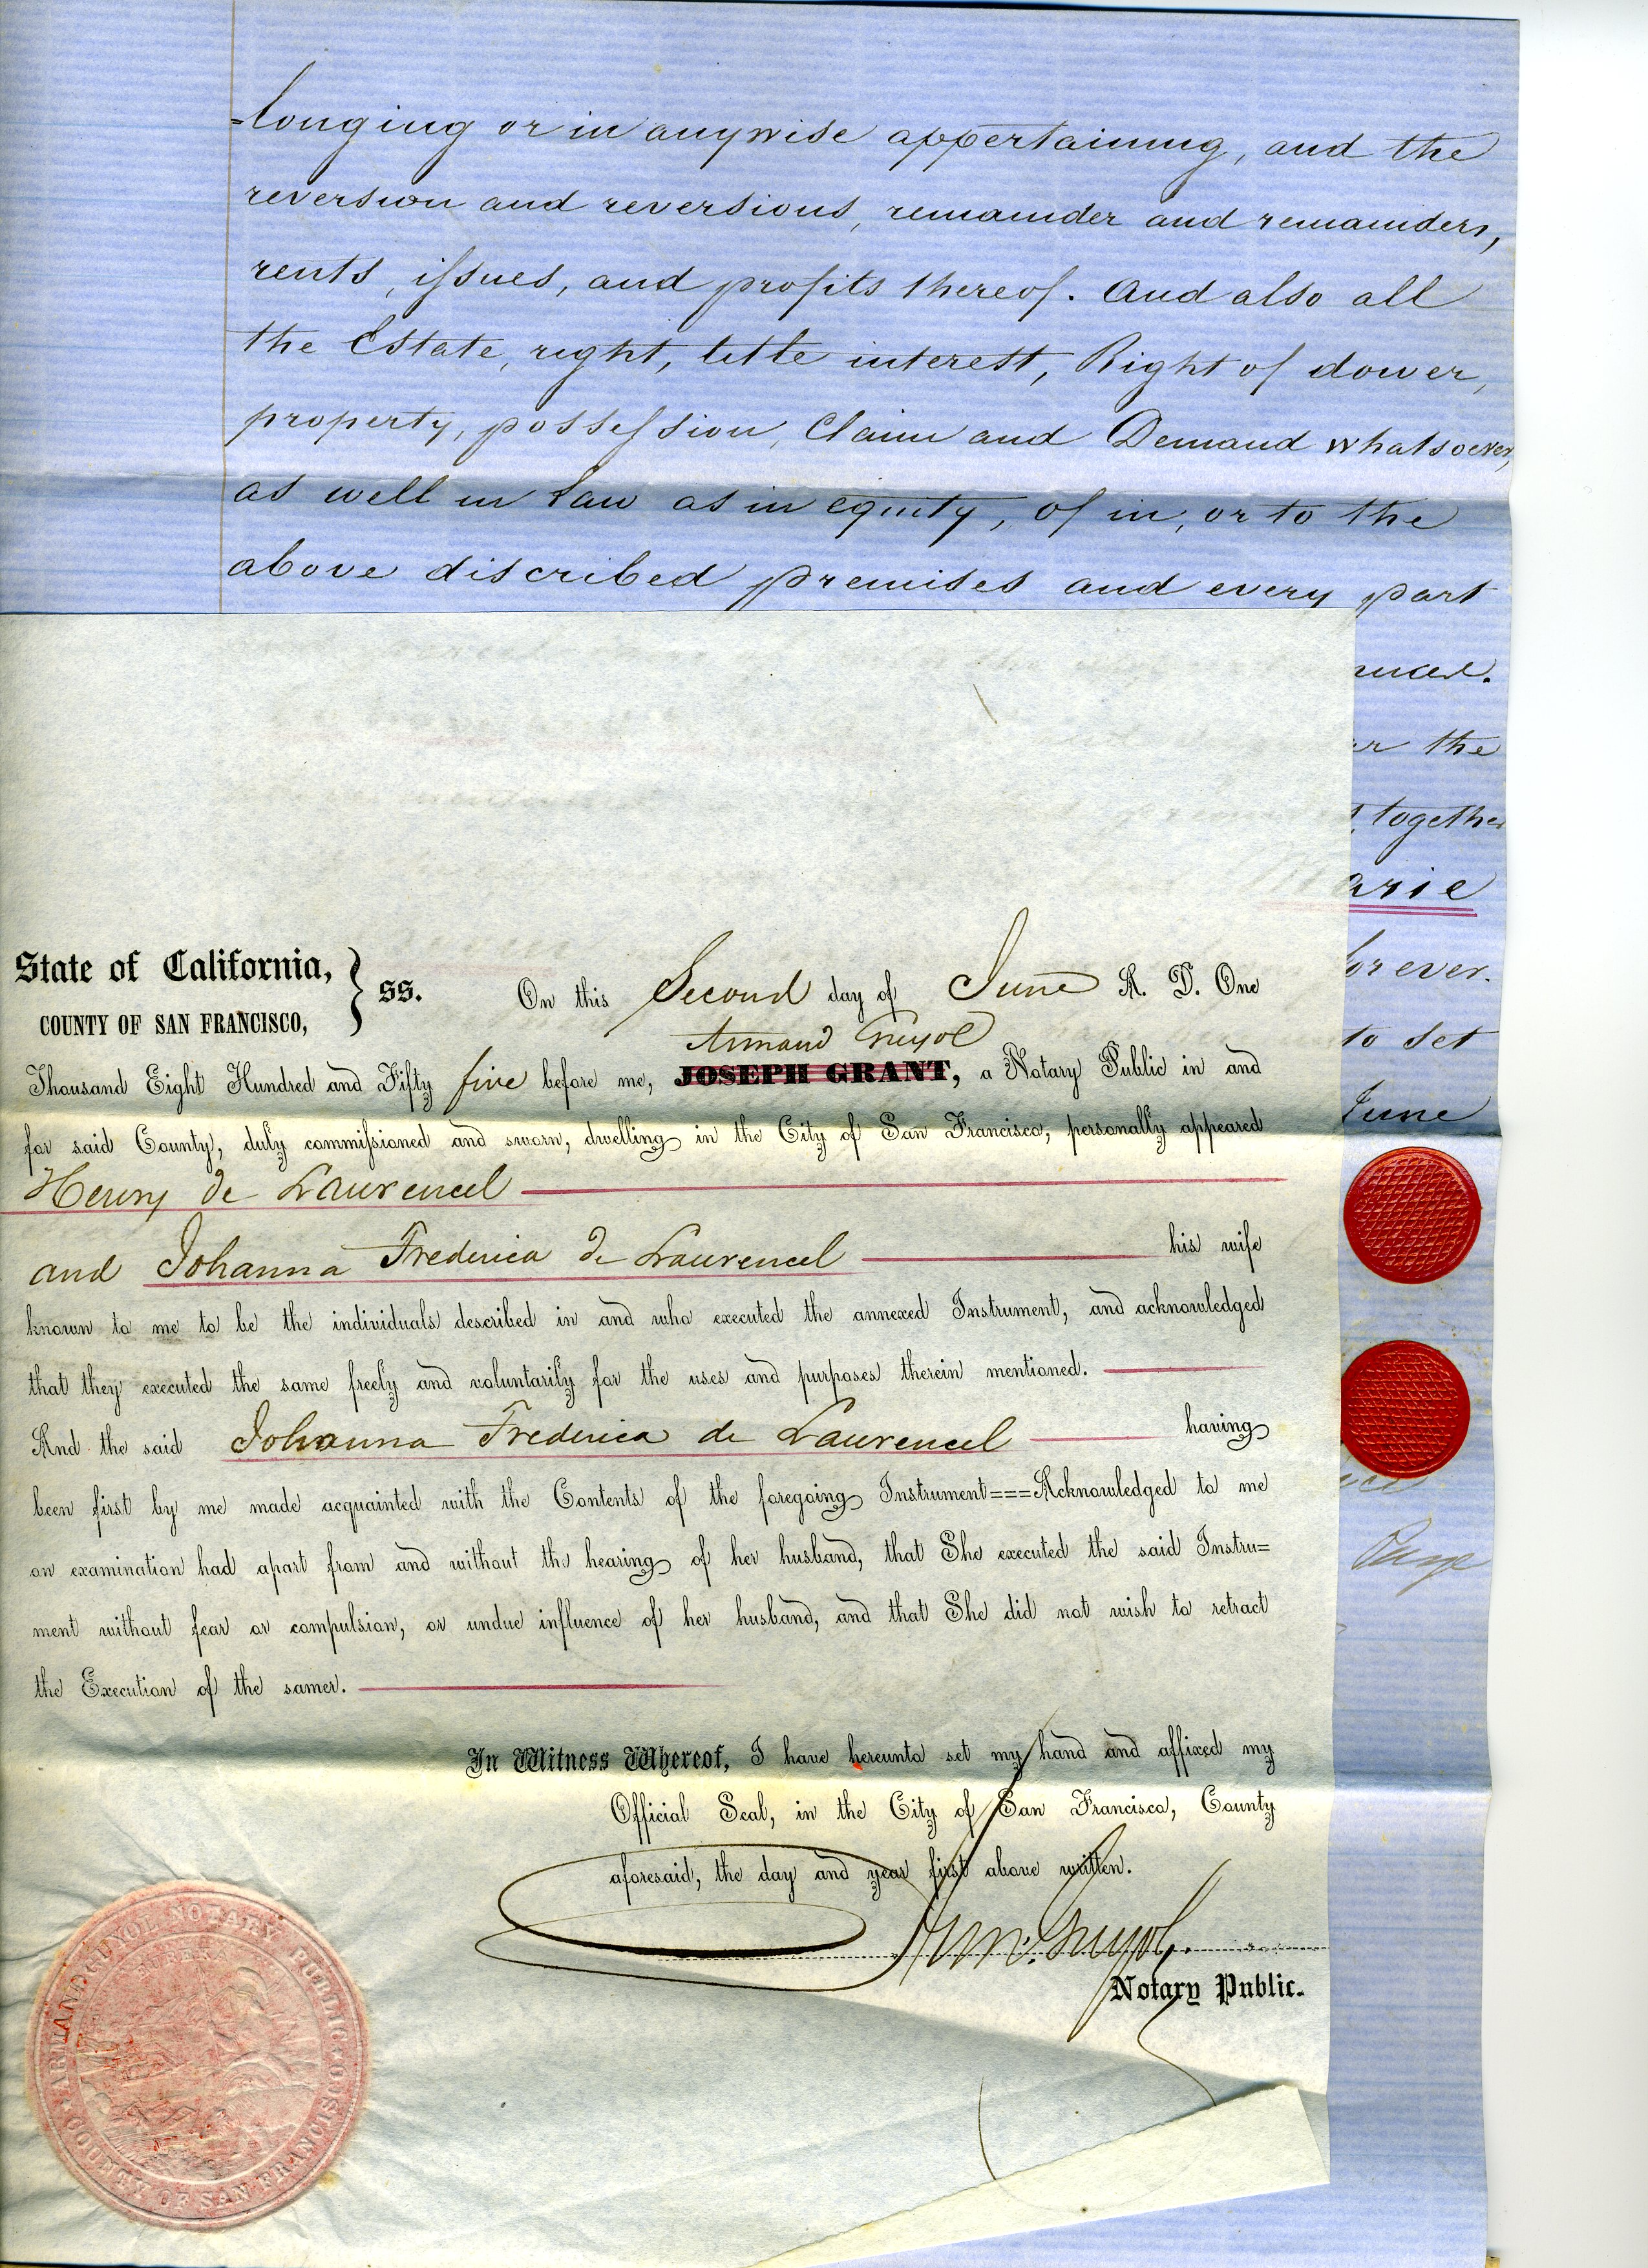 =longing or in anywise appertaining, and the
reversion and reversions, remainder and remainders,
rents, issues, and profits thereof. And also all
the Estate, right, title interest, Right of dower,
property, possession, Claim and Demand whatsoever,
as well in Law as in equity, of in, or to the
above discribed premises and every part
the
together
arie
for ever.
to set
June
State of California,
COUNTY OF SAN FRANCISCO,
SS.
On this Second day of June A. D. One
Armand Guyol
Thousand Eight Hundred and Fifty five before me, JOSEPH GRANT, a Notary Public in and
for said County, duly commissioned and sworn, dwelling in the City of San Francisco, personally appeared
Henry de Laurencel
and Johanna Frederica de Laurencel his wife
known to me to be the individuals described in and who executed the annexed Instrument, and acknowledged
that they executed the same freely and voluntarily for the uses and purposes therein mentioned.
And the said Johanna Frederica de Laurencel having
been first by me made acquainted with the Contents of the foregoing Instrument===Acknowledged to me
on examination had apart from and without the hearing of her husband, that She executed the said Instru=
ment without fear or compulsion, or undue influence of her husband, and that She did not wish to retract
the Execution of the samer.
In Witness Whereof, I have hereunto set my hand and affixed my
Official Seal, in the City of San Francisco, County
aforesaid, the day and year first above written.
Arm. Guyol.
Notary Public.
ARMAND GUYOL NOTARY PUBLIC
COUNTY OF SAN FRANCISCO